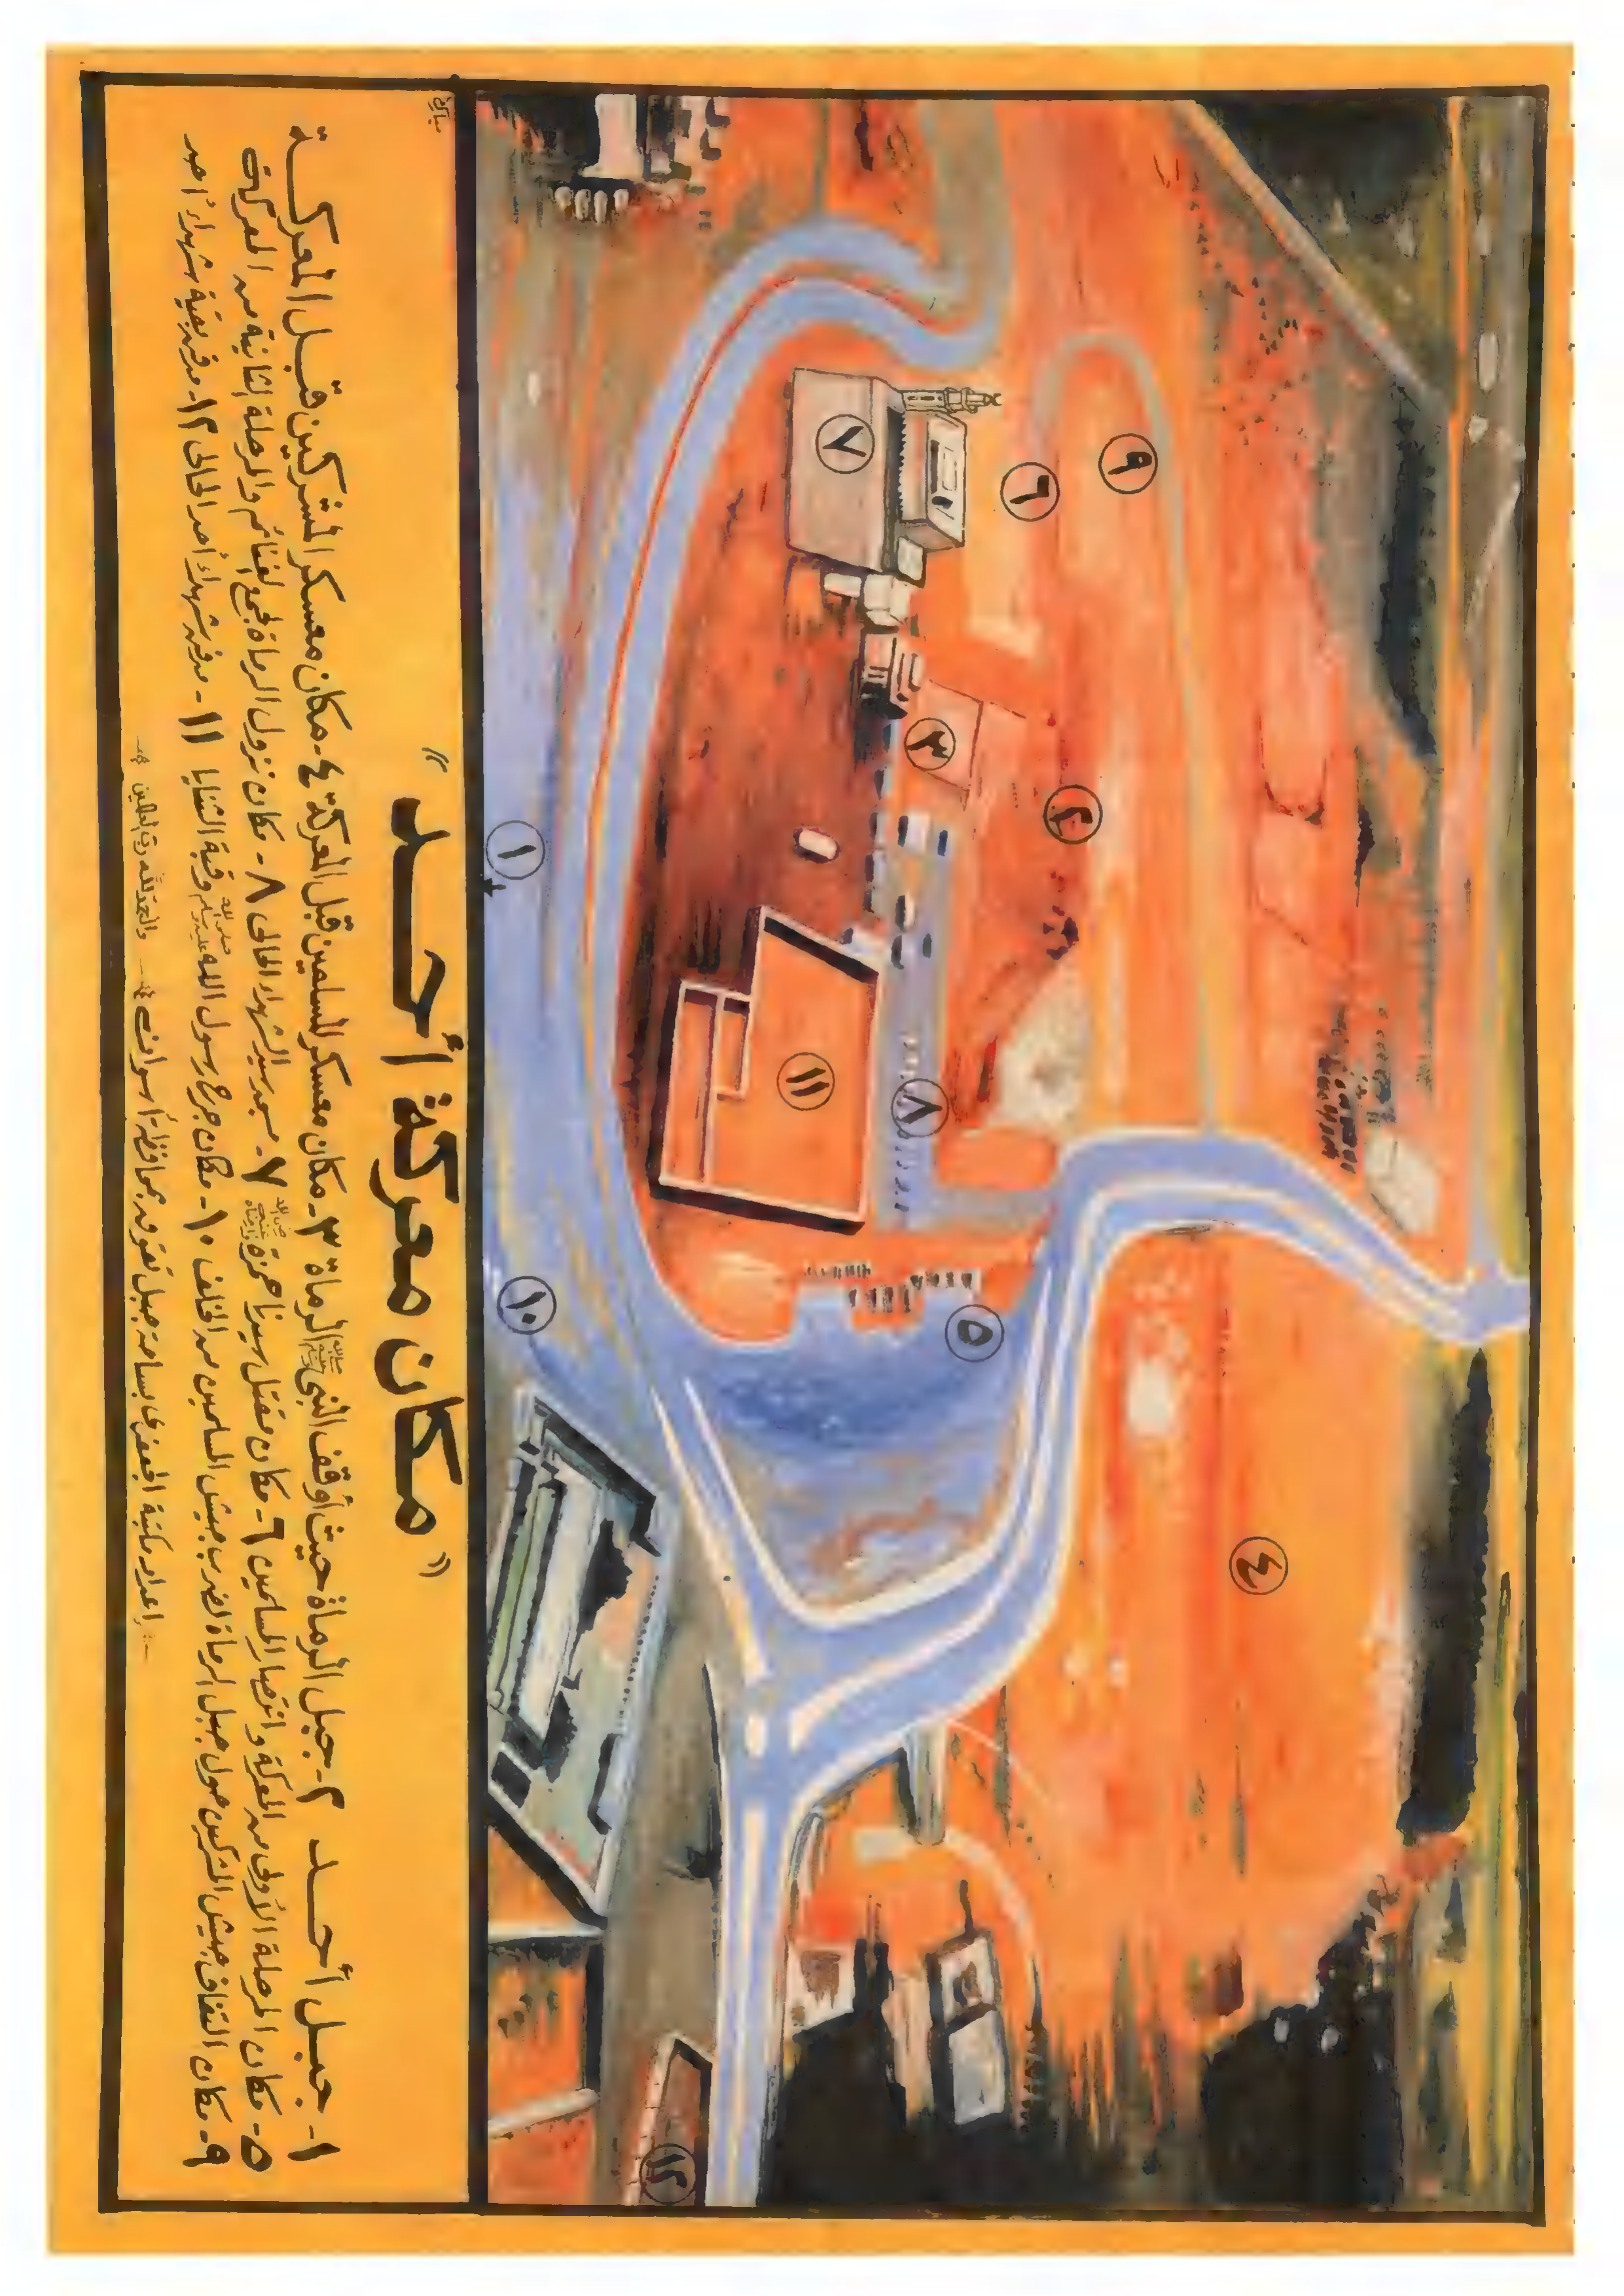 " مكان معركة أحـــد "
١- جبـل أحــد ٢- جبل الرماة حيث أوقف النبي ﷺ الرماة ٣- مكان معسكر المسلمين قبل المعركة ٤- مكان معسكر المشركين قبـل المعركــة
٥- مكان المرحلة الأولى من المعركة وانتصار المسلمين ٦- مكان مقتل سيدنا حمزة رضي الله عنه ٧- مسجد سيد الشهداء الحالى ٨- مكان نزول الرماة لجمع الغنائم والمرحلة الثانية من المعركة
٩- مكان التفاف جيش المشركين حول جبل الرماة لضرب جيش المسلمين من الخلف ١٠- مكان جرح رسول الله صلى الله عليه وسلم وقبة الثنايا ١١- مدفن شهداء أحد الحالى ١٢- مدفن بقية شهداء أحد
إعداد مكتبة الجعفرى بساحة جبل تقوق بمحافظة أسوان والحمد لله رب العالمين
١
٢
٣
٤
٥
٦
٧
٨
٩
١٠
١١
١٢